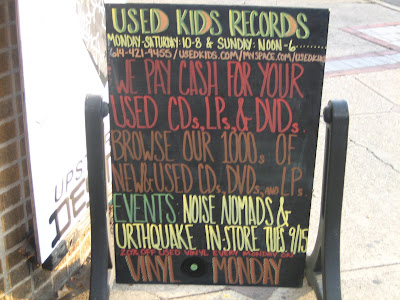 USED KIDS RECORDS
MONDAY-SATURDAY: 10-8 & SUNDAY: NOON-6
614-421-9455/USEDKIDS.COM/MYSPACE.COM/USEDKIDS
WE PAY CASH FOR YOUR
USED CDs, LPs, & DVDs.
BROWSE OUR 1000s OF
NEW & USED CDs, DVDs, AND LPs.
EVENTS: NOISE NOMADS &
URTHQUAKE IN-STORE TUES 9/15
20% OFF USED VINYL EVERY MONDAY
VINYL MONDAY